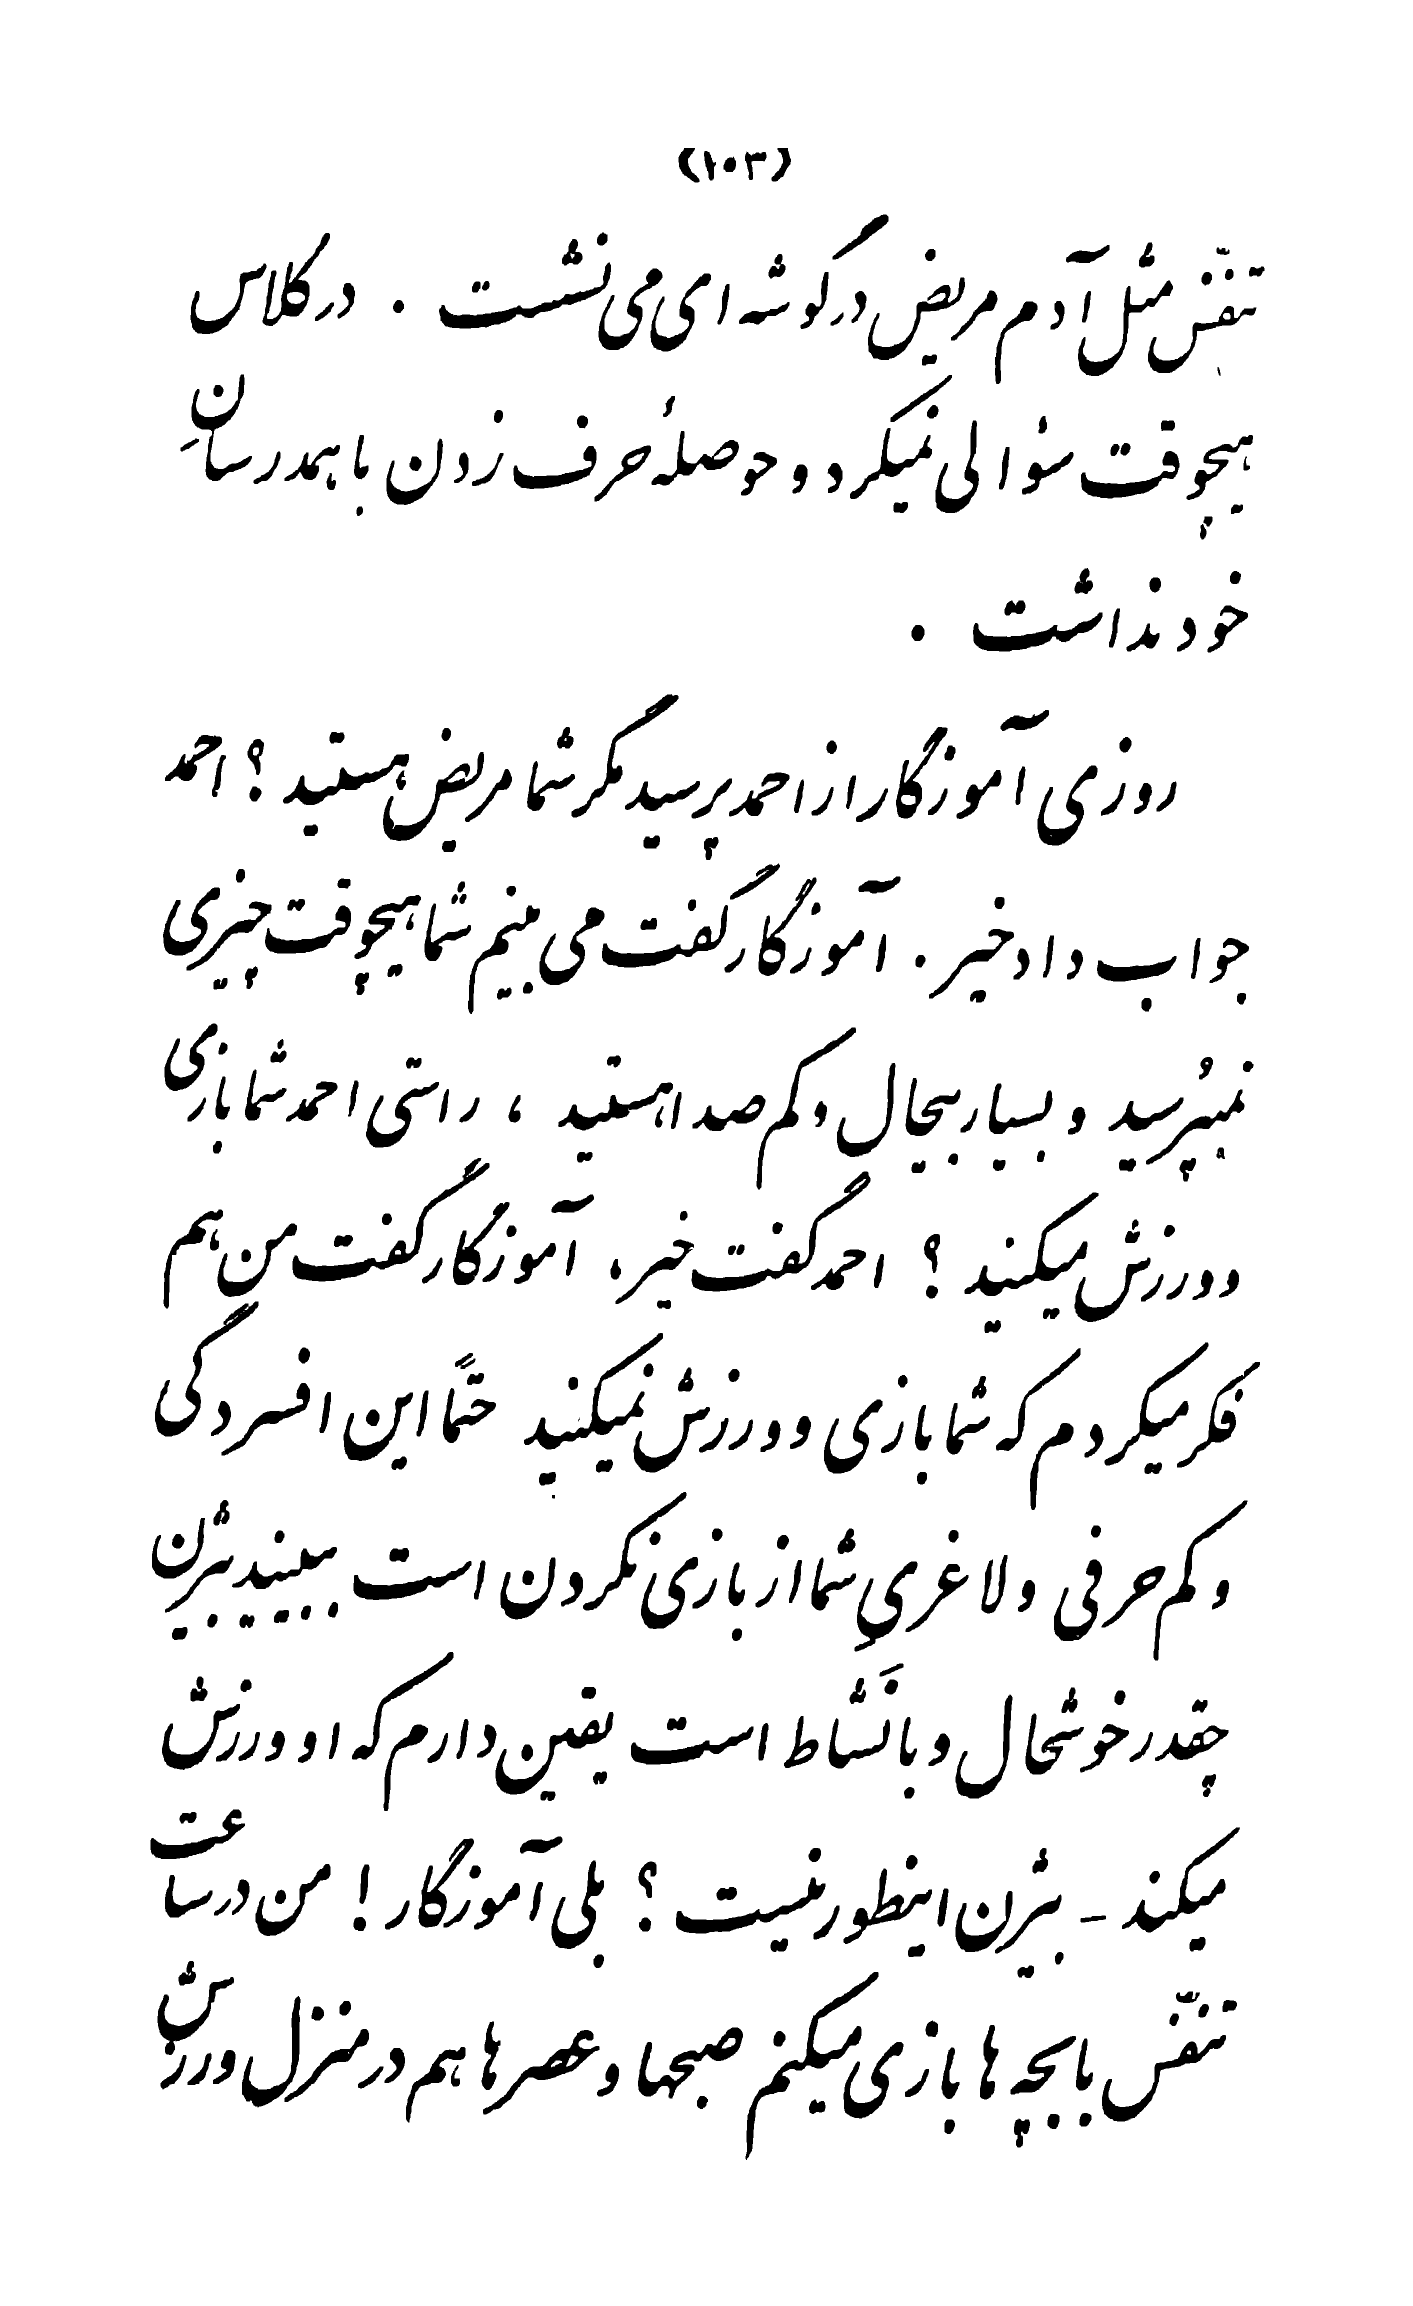 (۱۰۳)
تنفّس مثل آدم مریض در گوشه ای می نشست . در کلاس
هیچوقت سؤالی نمیکرد و حوصلهٔ حرف زدن با همدرسانِ
خود نداشت .
روزی آموزگار از احمد پرسید مگر شما مریض هستید ؟ احمد
جواب داد خیر . آموزگار گفت می بینم شما هیچوقت چیزی
نمیپُرسید و بسیار بیحال و کم صدا هستید ، راستی احمد شما بازی
و ورزش میکنید ؟ احمد گفت خیر ، آموزگار گفت من هم
فکر میکردم که شما بازی و ورزش نمیکنید حتماً این افسردگی
و کم حرفی و لاغریِ شما از بازی نکردن است ببینید بیژن
چقدر خوشحال و با نَشاط است یقین دارم که او ورزش
میکند - بیژن اینطور نیست ؟ بلی آموزگار ! من در ساعت
تنفّس با بچه ها بازی میکنم صبحها و عصرها هم در منزل ورزش